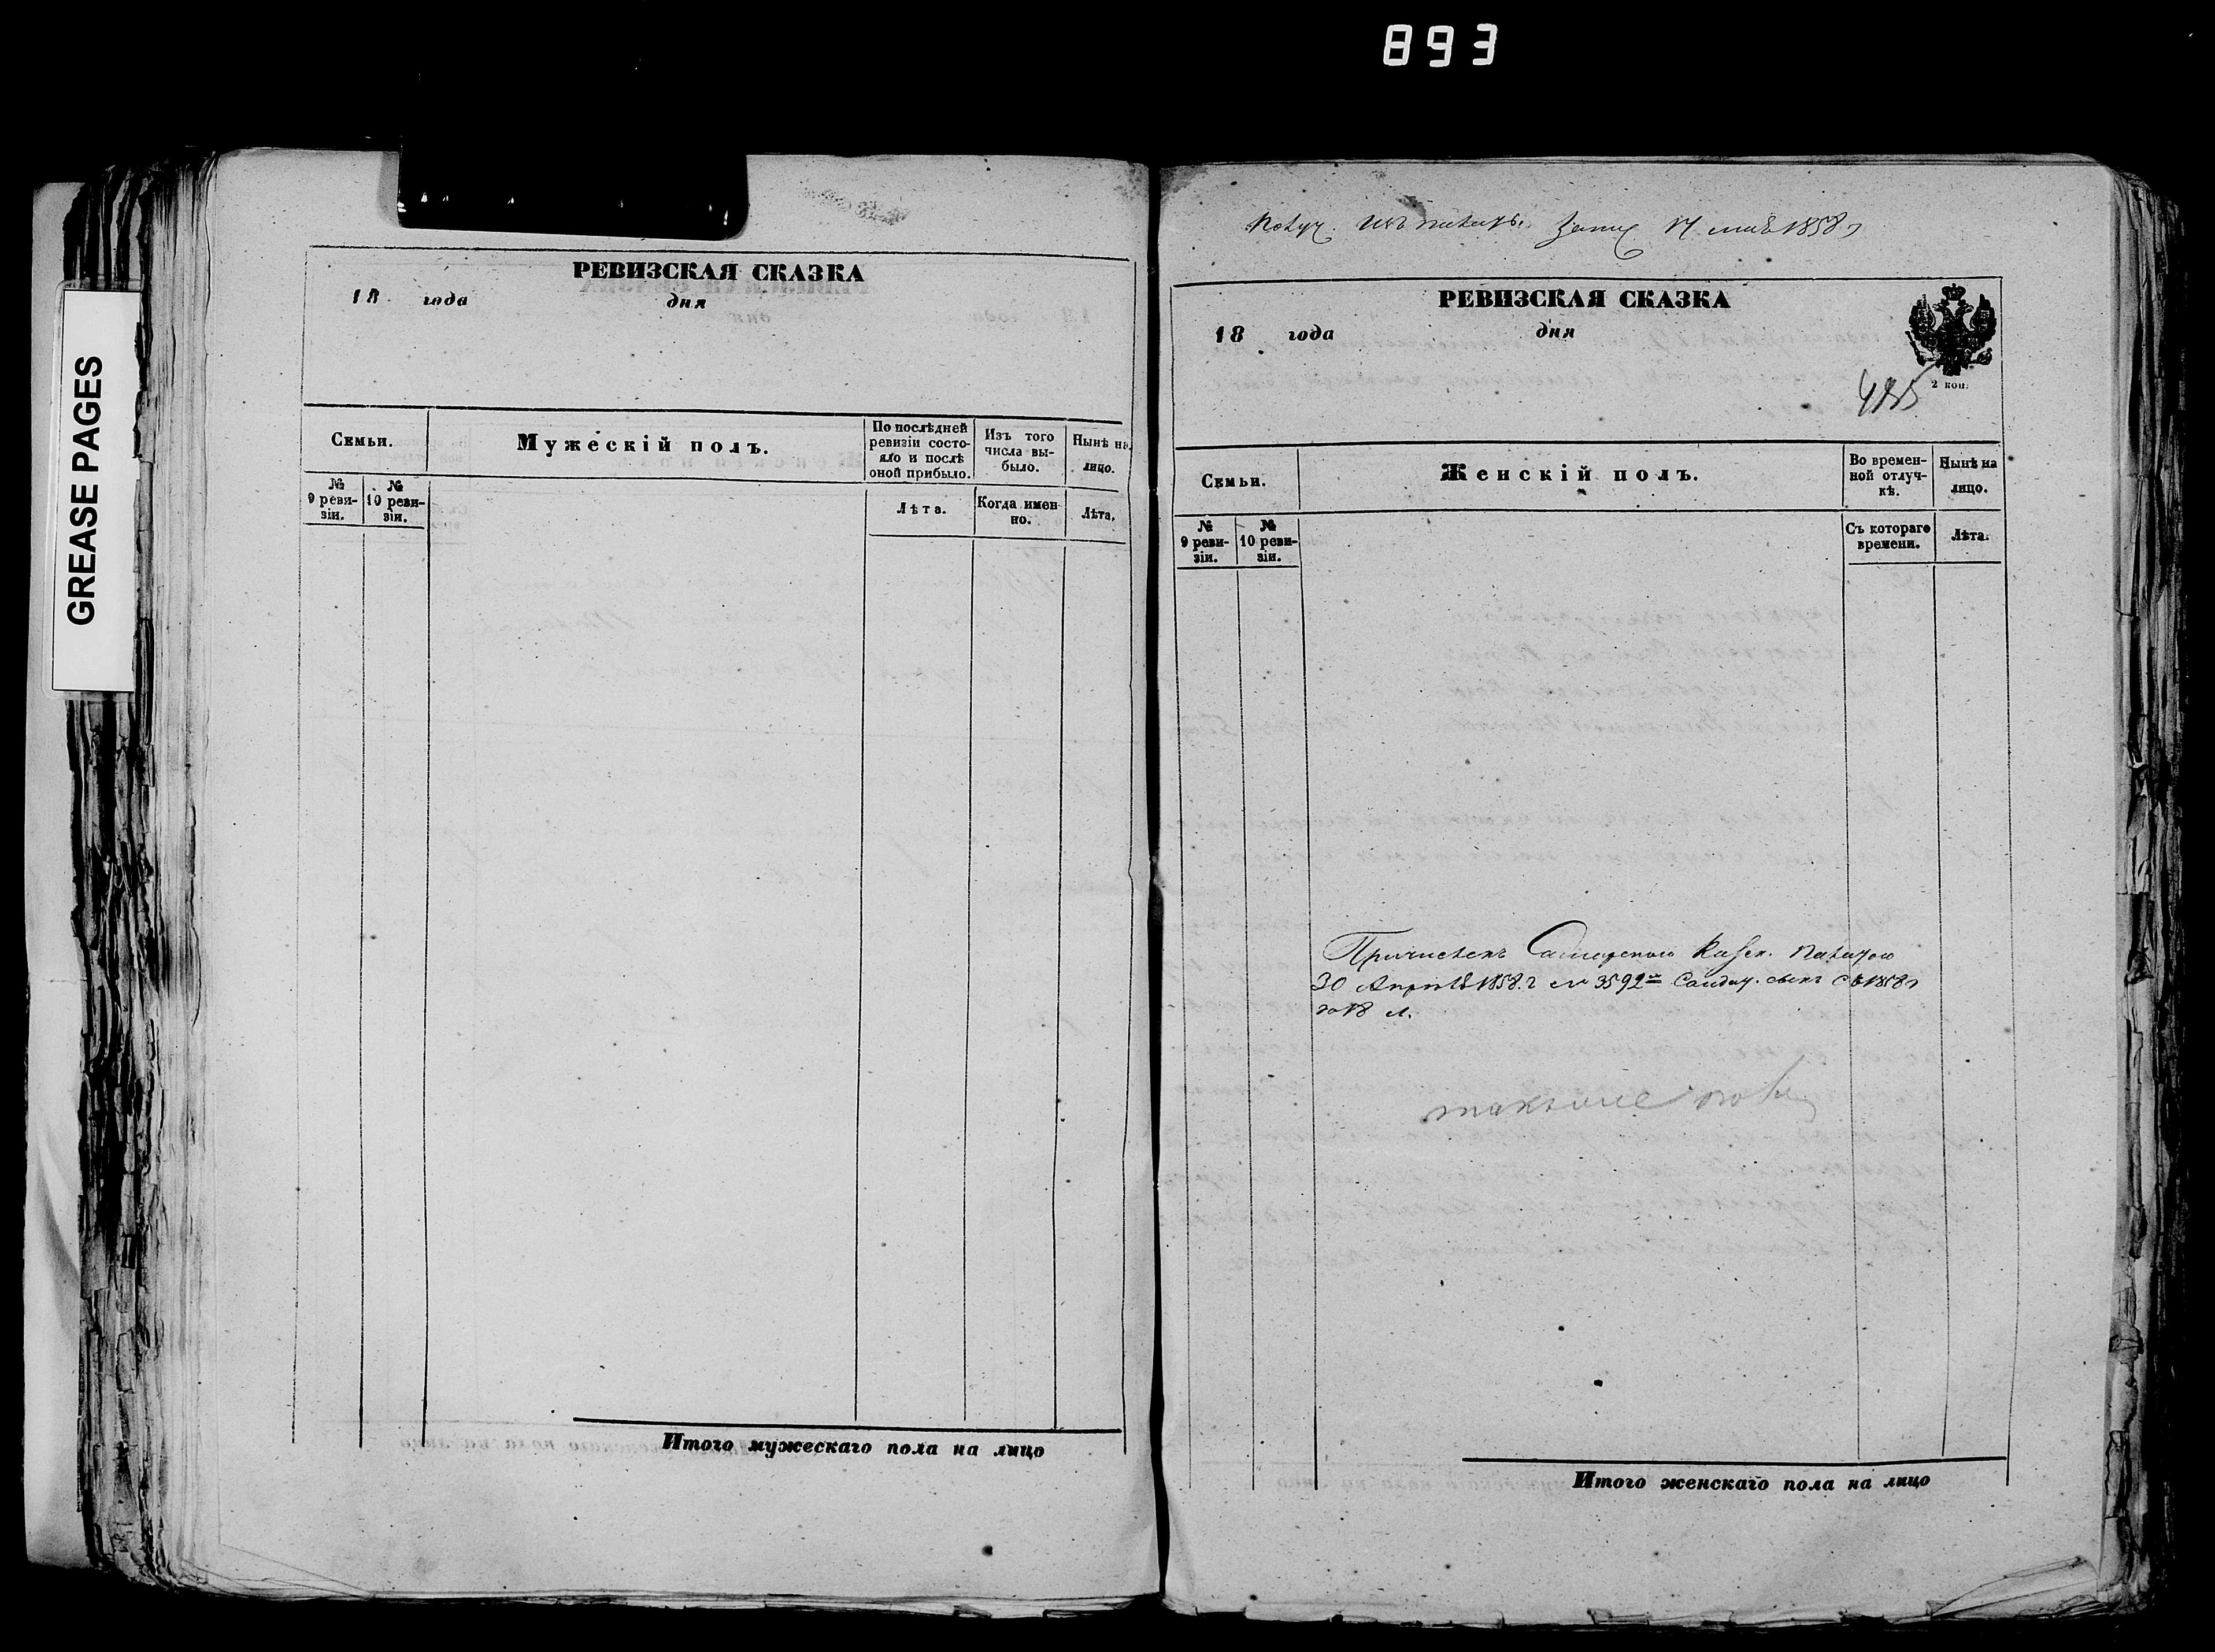 893
GREASE PAGES
РЕВИЗСКАЯ СКАЗКА
18 года дня
Семьи.
Мужескій полъ.
По послѣдней ревизіи состояло и послѣ оной прибыло.
Изъ того числа выбыло.
Нынѣ на лицо.
№ 9 ревизіи.
№ 10 ревизіи.
Лѣта.
Когда именно.
Лѣта.
Итого мужескаго пола на лицо
Получ. изъ палаты 17 мая 1858 г
РЕВИЗСКАЯ СКАЗКА
18 года дня
2 коп.
485
Семьи.
Женскій полъ.
Во временной отлучкѣ.
Нынѣ на лицо.
№ 9 ревизіи.
№ 10 ревизіи.
Съ котораго времени.
Лѣта.
Причисленъ Самарскою Казен. Палатою
30 Апрѣля 1858. г № 3592 съ 1858 г
Итого женскаго пола на лицо